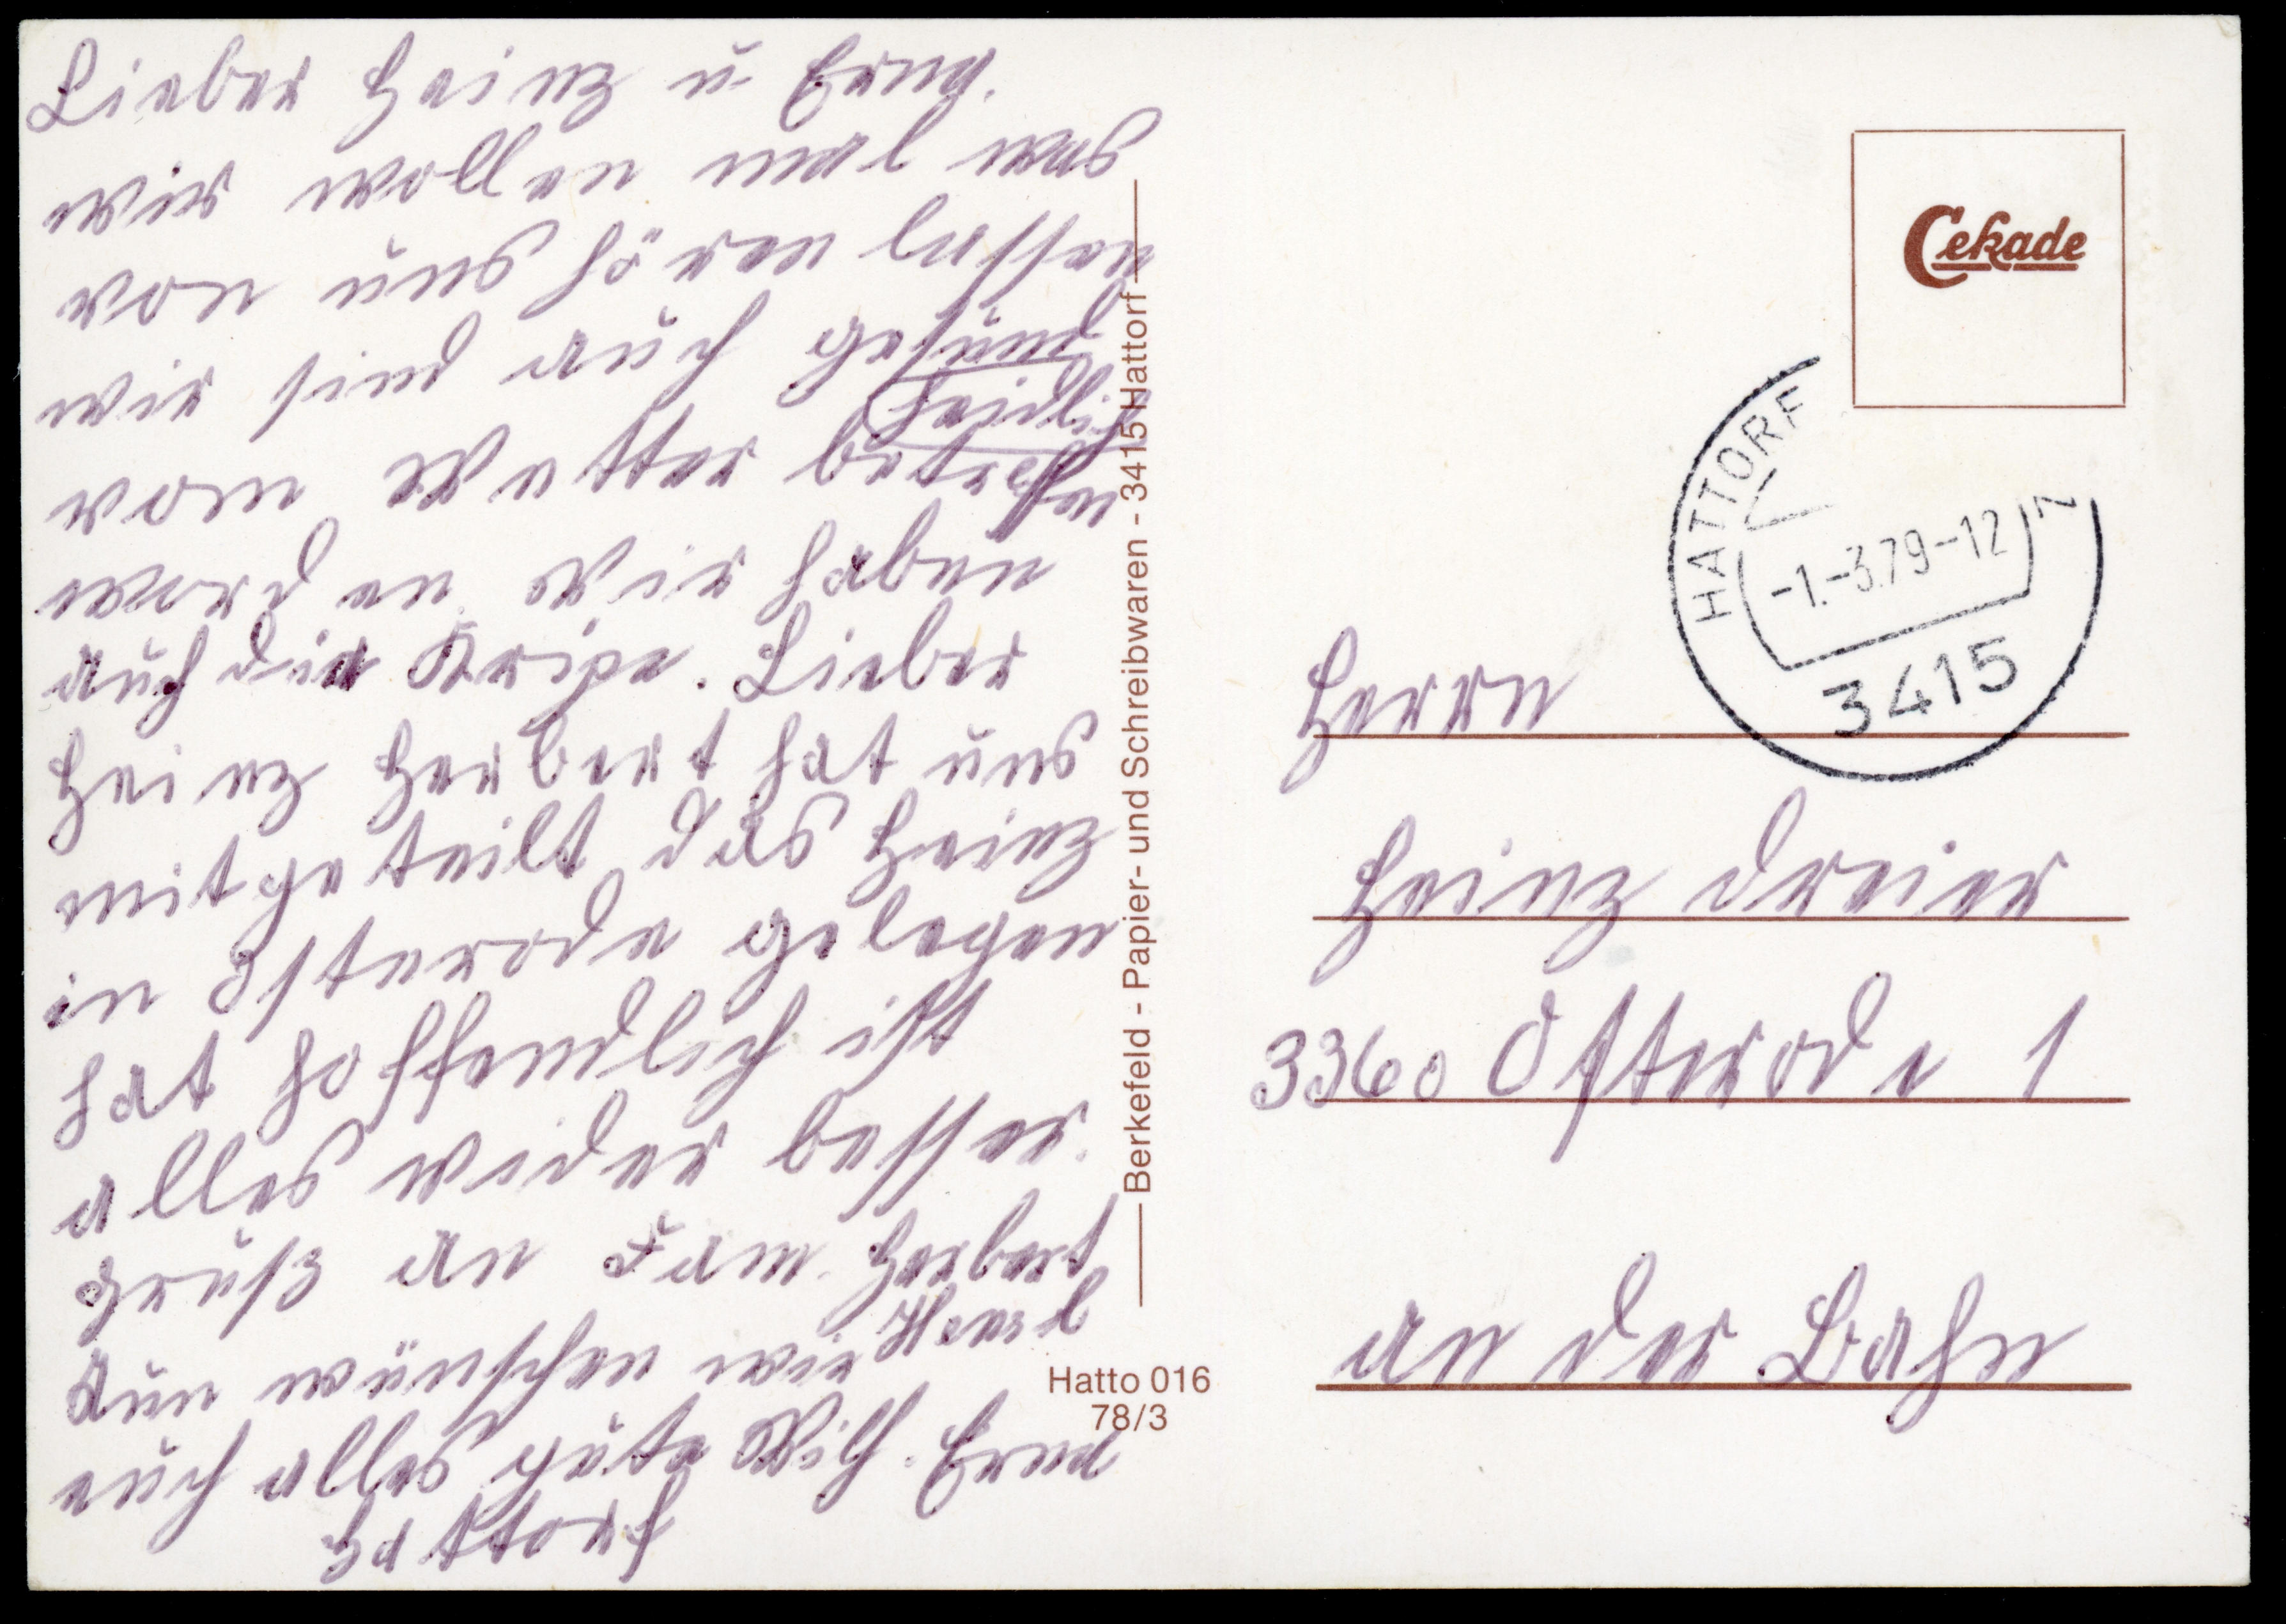 Lieber Heinz u Erna.
wir wollen mal was
von uns hören lassen
wir sind auch gesund
vom Wetter betroffen
worden wir haben
auch die Gripe. Lieber
Heinz Herbert hat uns
mitgeteilt das Heinz
in Osterode gelegen
hat hoffendlich ist
alles wider besser.
Gruß an Fam. Herbert
Nun wünschen wir
euch alles gute Wilh. Erna
Hattorf
Berkefeld - Papier- und Schreibwaren - 3415 Hattorf
Hatto 016
78/3
Cekade
HATTORF
-1.-3.79-12
3415
Herrn
Heinz Dreier
3360 Osterode 1
an der Bahn